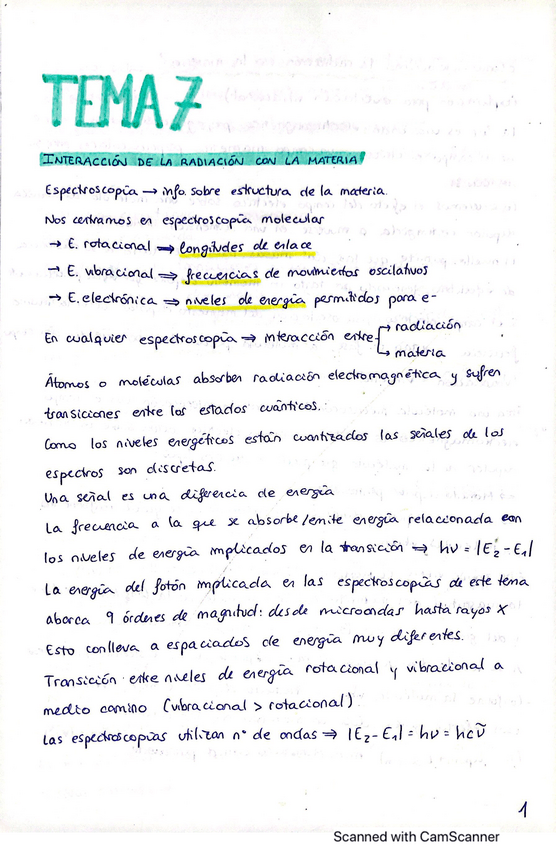 TEMA 7
INTERACCIÓN DE LA RADIACIÓN CON LA MATERIA
Espectroscopía → info sobre estructura de la materia.
Nos centramos en espectroscopía molecular
→ E. rotacional ⇒ longitudes de enlace
→ E. vibracional ⇒ frecuencias de movimientos oscilativos
→ E. electrónica ⇒ niveles de energía permitidos para e-
En cualquier espectroscopía → interacción entre → radiación
→ materia
Átomos o moléculas absorben radiación electromagnética y sufren
transiciones entre los estados cuánticos.
Como los niveles energéticos están cuantizados las señales de los
espectros son discretas.
Una señal es una diferencia de energía
La frecuencia a la que se absorbe/emite energía relacionada con
los niveles de energía implicados en la transición ⇒ hν = |E₂ - E₁|
La energía del fotón implicada en las espectroscopías de este tema
abarca 9 órdenes de magnitud: desde microondas hasta rayos X
Esto conlleva a espaciados de energía muy diferentes.
Transición entre niveles de energía rotacional y vibracional a
medio camino (vibracional > rotacional)
Las espectroscopías utilizan nº de ondas ⇒ |E₂ - E₁| = hν = hcν̃
1
Scanned with CamScanner